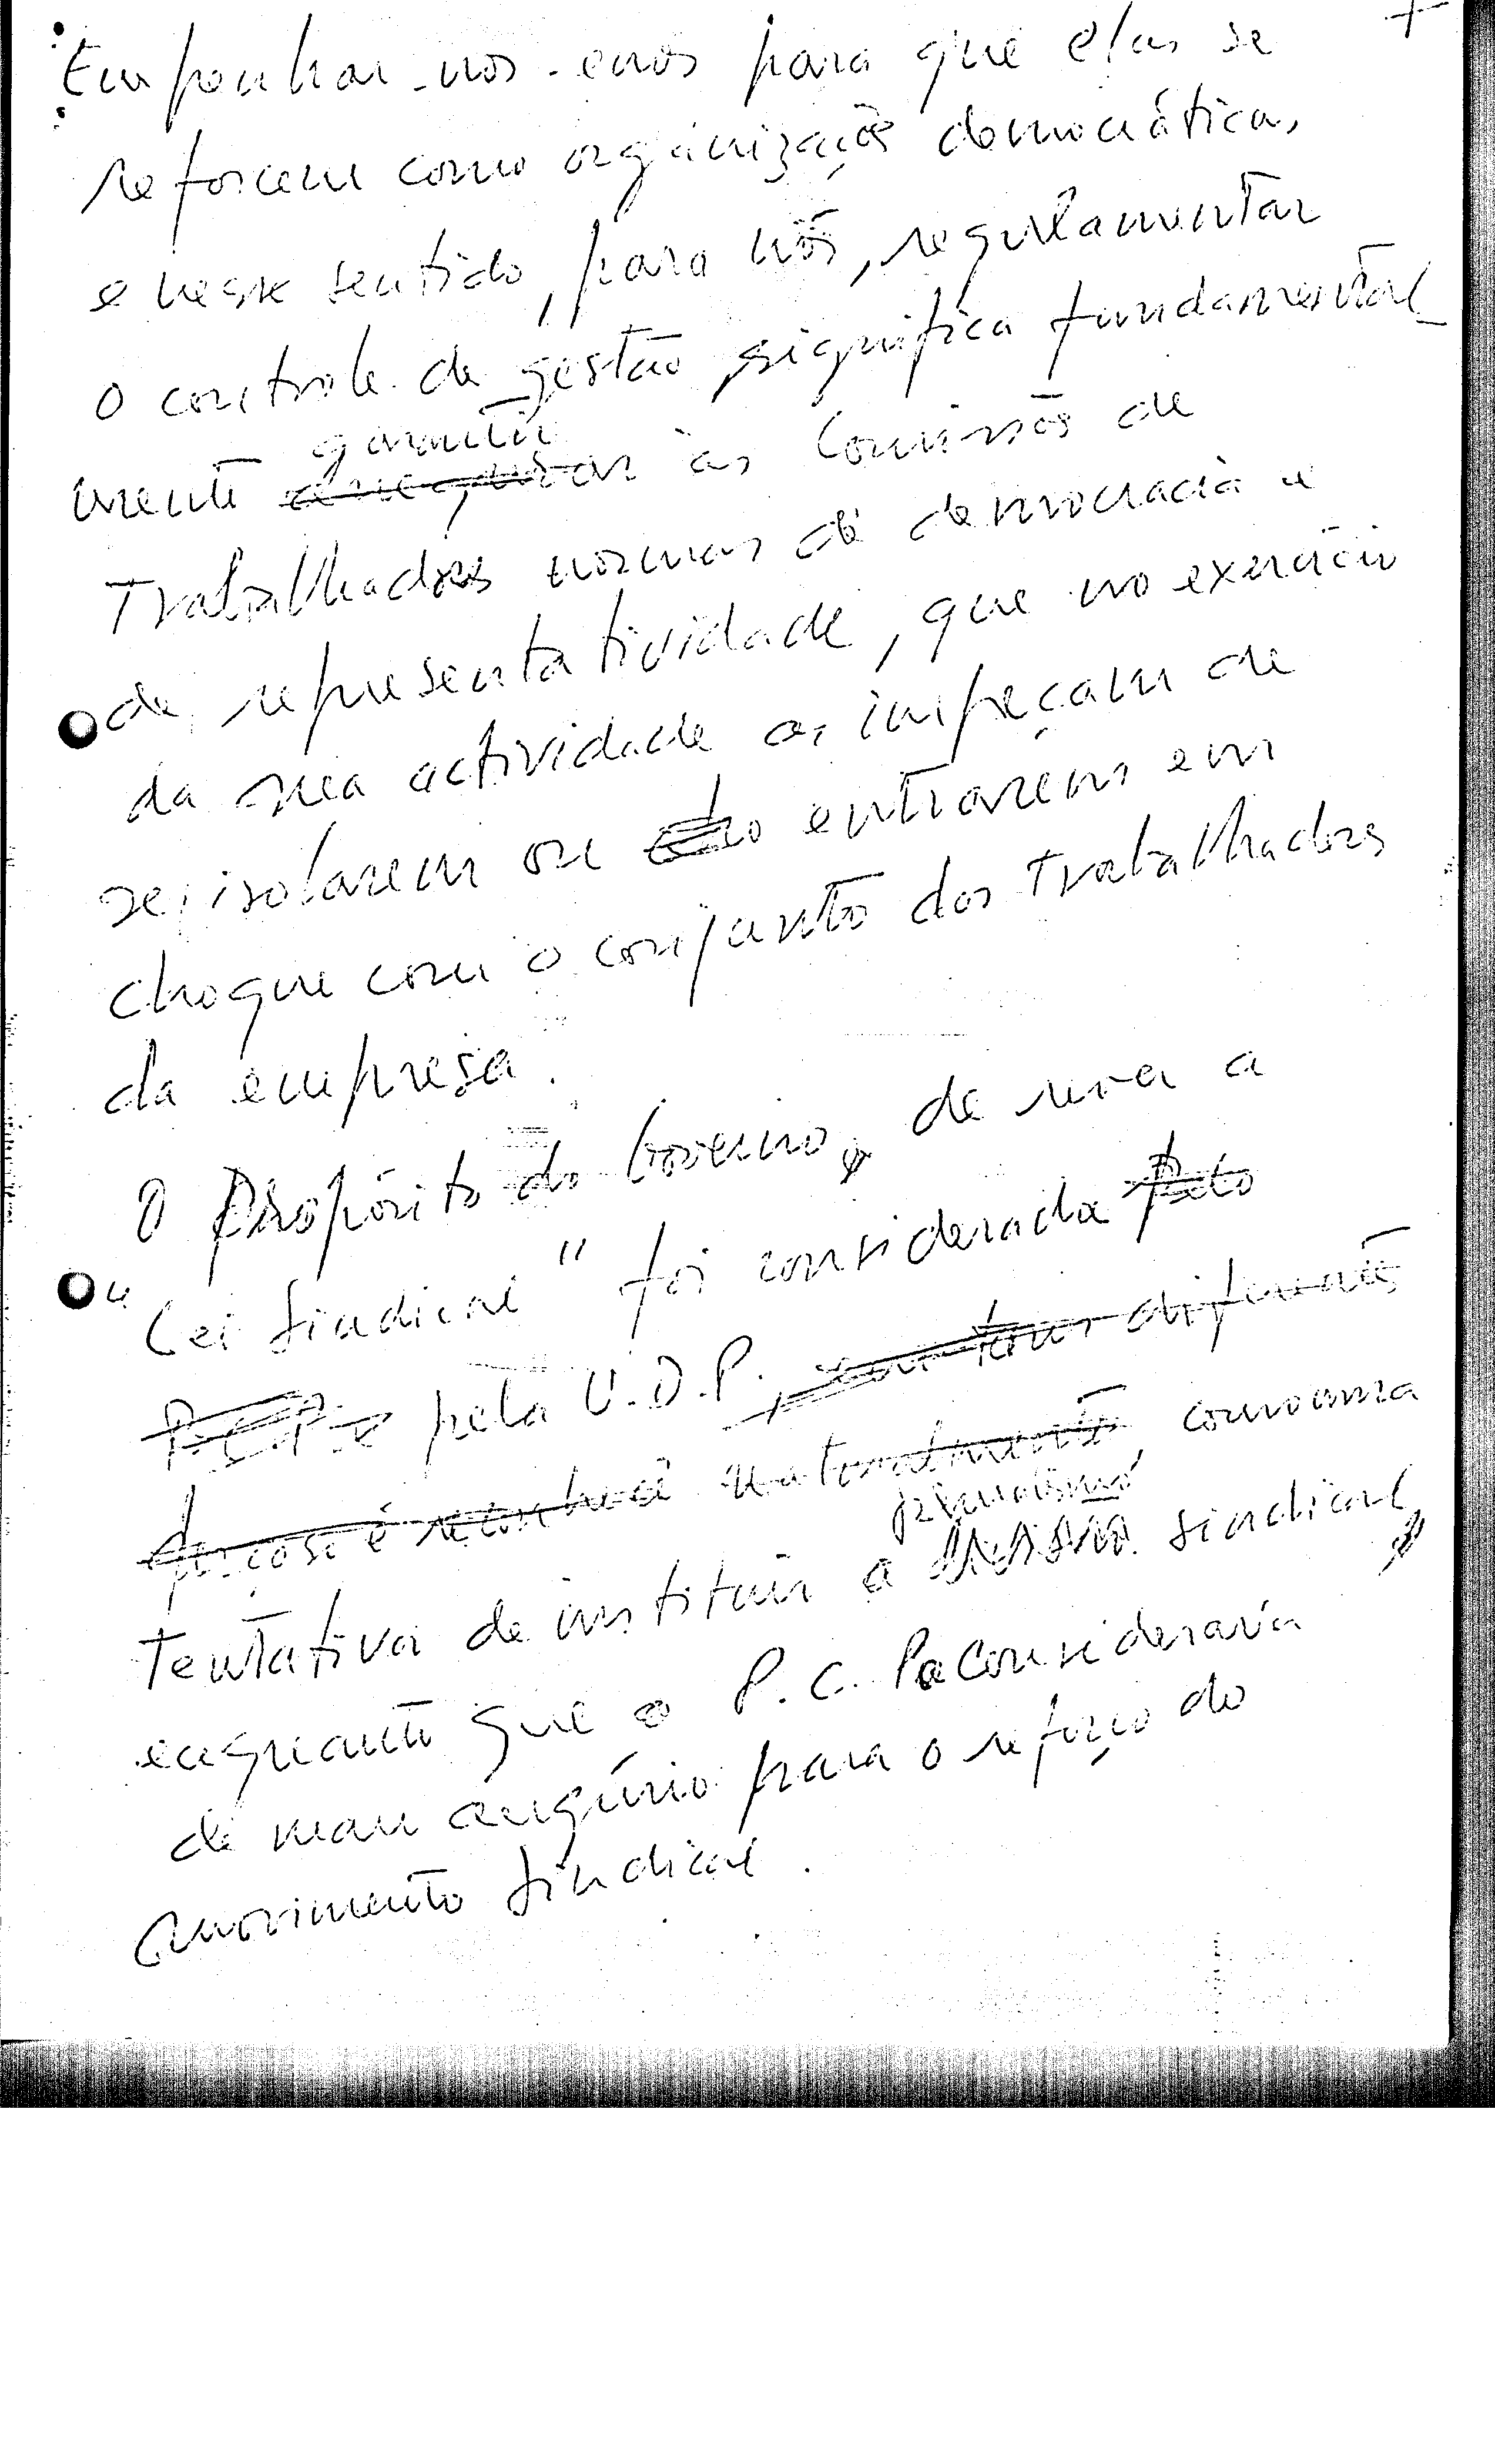 Empenhar-nos-emos para que elas se
reforcem como organizações democráticas,
e neste sentido, para nós, regulamentar
o controle de gestão significa fundamental_
garantir
mente assegurar às Comissões de
Trabalhadores normas de democracia e
de representatividade, que no exercício
da sua actividade as impeçam de
se isolarem ou entrarem em
choque com o conjunto dos trabalhadores
da empresa.
O Propósito do Governo, de rever a
"Lei Sindical" foi considerada pelo
P.C.P. e pela U.D.P., com tons diferentes
naturalmente, como uma
pluralismo
tentativa de instituir o divisão sindical,
enquanto que o P.C.P. a consideraria
de mau augúrio para o reforço do
movimento sindical.